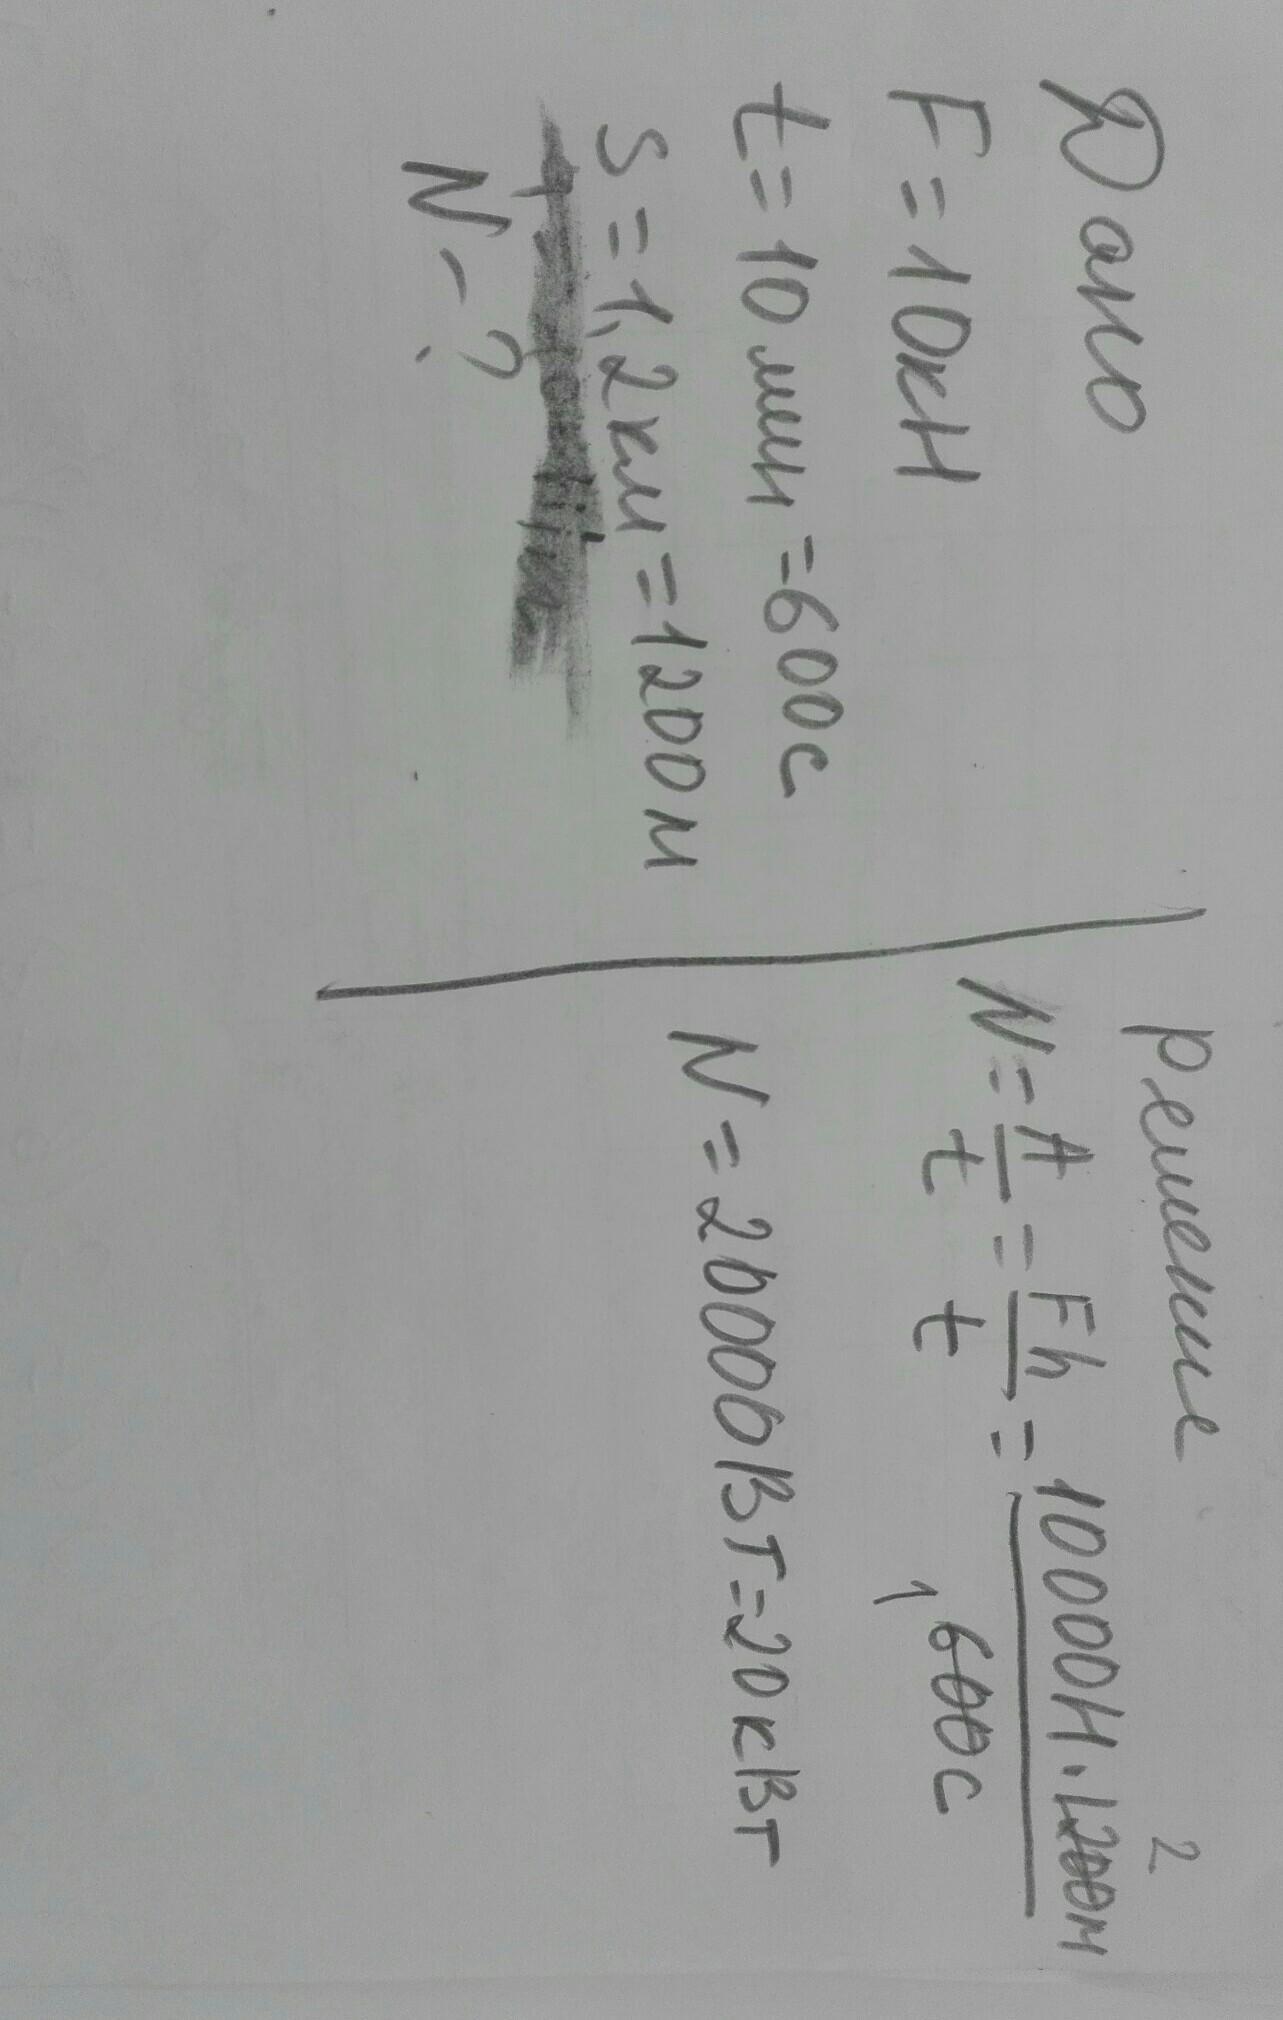 Дано
F=10кН
t=10мин=600с
S=1,2км=1200м
N-?
решение
N=A/t=Fh/t=10000Н·1200м/600с
2
1
N=20000Вт=20кВт